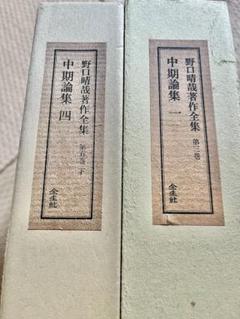 野口晴哉著作全集 第三巻
中期論集 一
全生社
野口晴哉著作全集 第五巻 下
中期論集 四
全生社